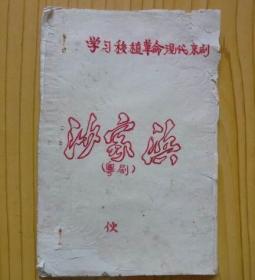 学习移植革命现代京剧
沙家浜
(粤剧)